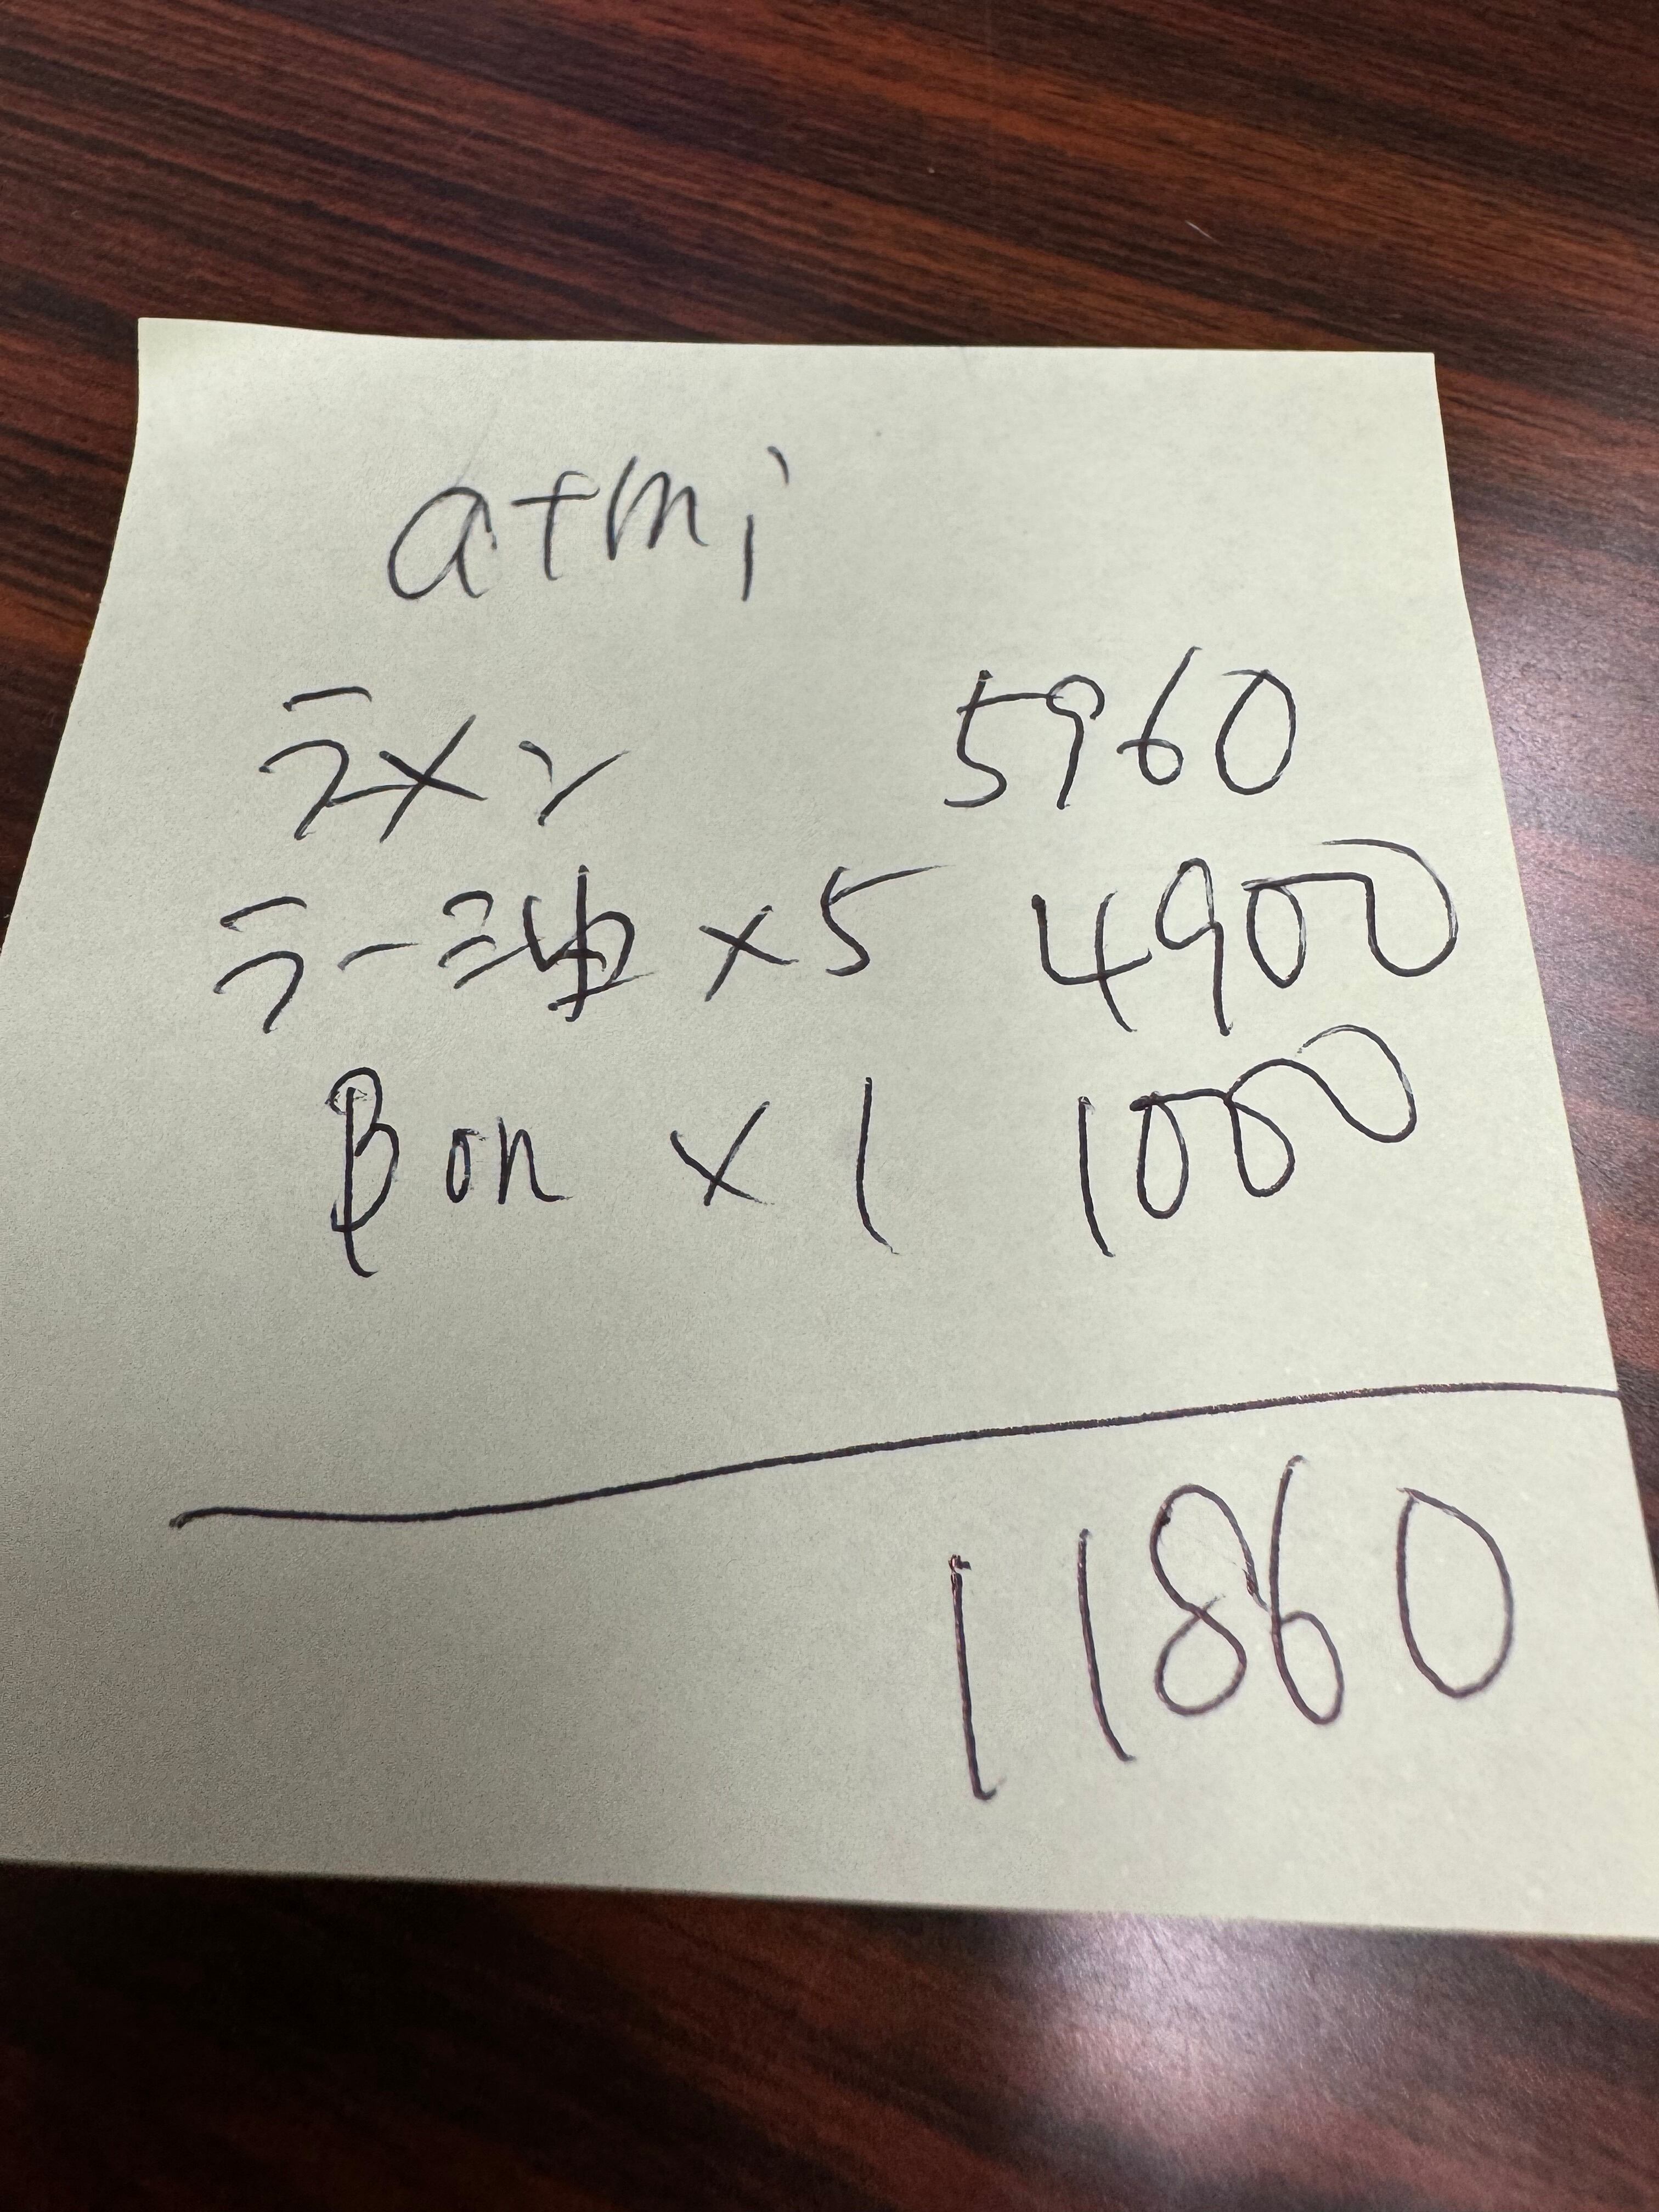 atmi
ラメン 5960
ラーミ油 ×5 4900
Bon × 1 1000
11860